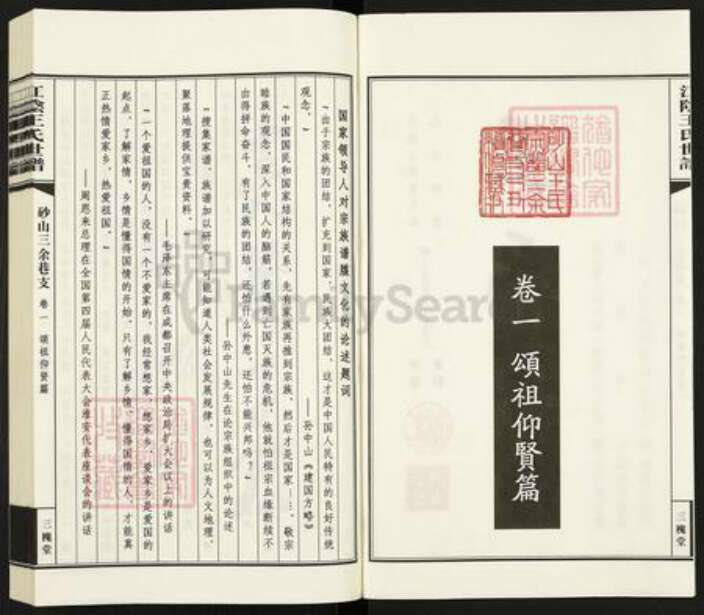 江陰王氏世譜
卷一 頌祖仰賢篇
三槐堂
江陰王氏世譜
砂山三余巷支
卷一
頌祖仰賢篇
三槐堂
国家领导人对宗族谱牒文化的论述题词
“由于宗族的团结，扩充到国家、民族大团结，这才是中国人民特有的良好传统
观念。”
——孙中山《建国方略》
“中国国民和国家结构的关系，先有家族再推到宗族，然后才是国家……。敬宗
睦族的观念，深入中国人的脑筋，若遇到亡国灭族的危机，他就怕祖宗血缘断续不
由得拼命奋斗，有了民族的团结，还怕什么外患，还怕不能兴邦吗？”
——孙中山先生在论宗族组织中的论述
“搜集家谱、族谱加以研究，可能知道人类社会发展规律，也可以为人文地理、
聚落地理提供宝贵资料。”
——毛泽东主席在成都召开中央政治局扩大会议上的讲话
“一个爱祖国的人，没有一个不爱家的，我经常想家，想家乡，爱家乡是爱国的
起点，了解家情、乡情是懂得国情的开始，只有了解乡情、懂得国情的人，才能真
正热情爱家乡，热爱祖国。”
——周恩来总理在全国第四届人民代表大会淮安代表座谈会的讲话
FamilySearch